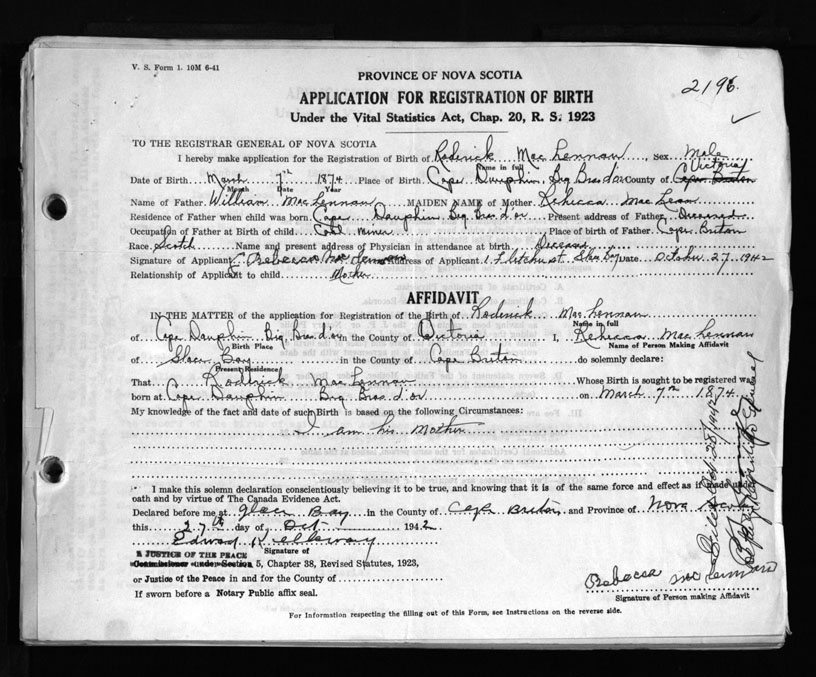 V. S. Form 1. 10M 6-41
2196.
PROVINCE OF NOVA SCOTIA
APPLICATION FOR REGISTRATION OF BIRTH
Under the Vital Statistics Act, Chap. 20, R. S. 1923
TO THE REGISTRAR GENERAL OF NOVA SCOTIA
I hereby make application for the Registration of Birth of Roderick MacLennan, Sex Male
Name in full
Victoria
Date of Birth March 7th 1874 Place of Birth Cape Dauphin, Big Bras d'or County of Cape Breton
Month Date Year
Name of Father William MacLennan MAIDEN NAME of Mother Rebecca MacLean
Residence of Father when child was born Cape Dauphin Big Bras d'or Present address of Father Deceased
Occupation of Father at Birth of child Coal miner Place of birth of Father Cape Breton
Race Scotch Name and present address of Physician in attendance at birth Deceased
Signature of Applicant Rebecca MacLennan Address of Applicant Glace Bay Date October 27 1942
Relationship of Applicant to child Mother
AFFIDAVIT
IN THE MATTER of the application for Registration of the Birth of Roderick MacLennan
Name in full
of Cape Dauphin Big Bras d'or in the County of Victoria I, Rebecca MacLennan
Birth Place Name of Person Making Affidavit
of Glace Bay in the County of Cape Breton do solemnly declare:
Present Residence
That Roderick MacLennan Whose Birth is sought to be registered was
born at Cape Dauphin Big Bras d'or on March 7th 1874
My knowledge of the fact and date of such Birth is based on the following Circumstances:
I am his Mother
I make this solemn declaration conscientiously believing it to be true, and knowing that it is of the same force and effect as if made under
oath and by virtue of The Canada Evidence Act.
Declared before me at Glace Bay in the County of Cape Breton and Province of Nova Scotia
this 27th day of Oct 1942
Edward Kelloway
Signature of
A JUSTICE OF THE PEACE
Commissioner under Section 5, Chapter 38, Revised Statutes, 1923,
or Justice of the Peace in and for the County of
If sworn before a Notary Public affix seal.
Rebecca MacLennan
Signature of Person making Affidavit
For Information respecting the filling out of this Form, see Instructions on the reverse side.